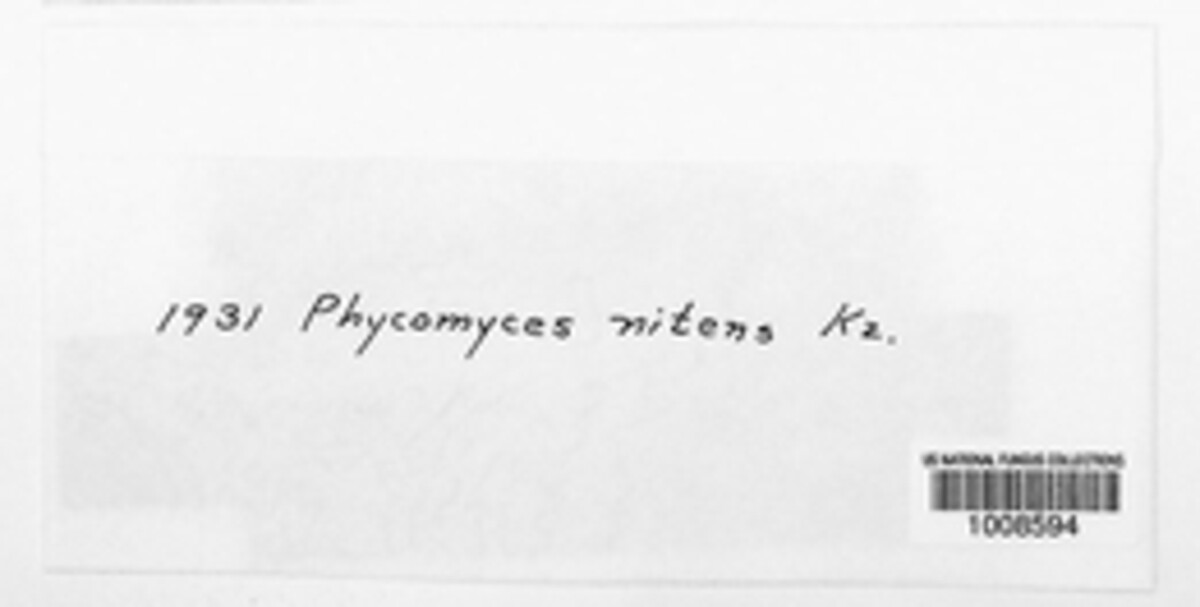 1931 Phycomyces nitens Kz.
US NATIONAL FUNGUS COLLECTIONS
1008594